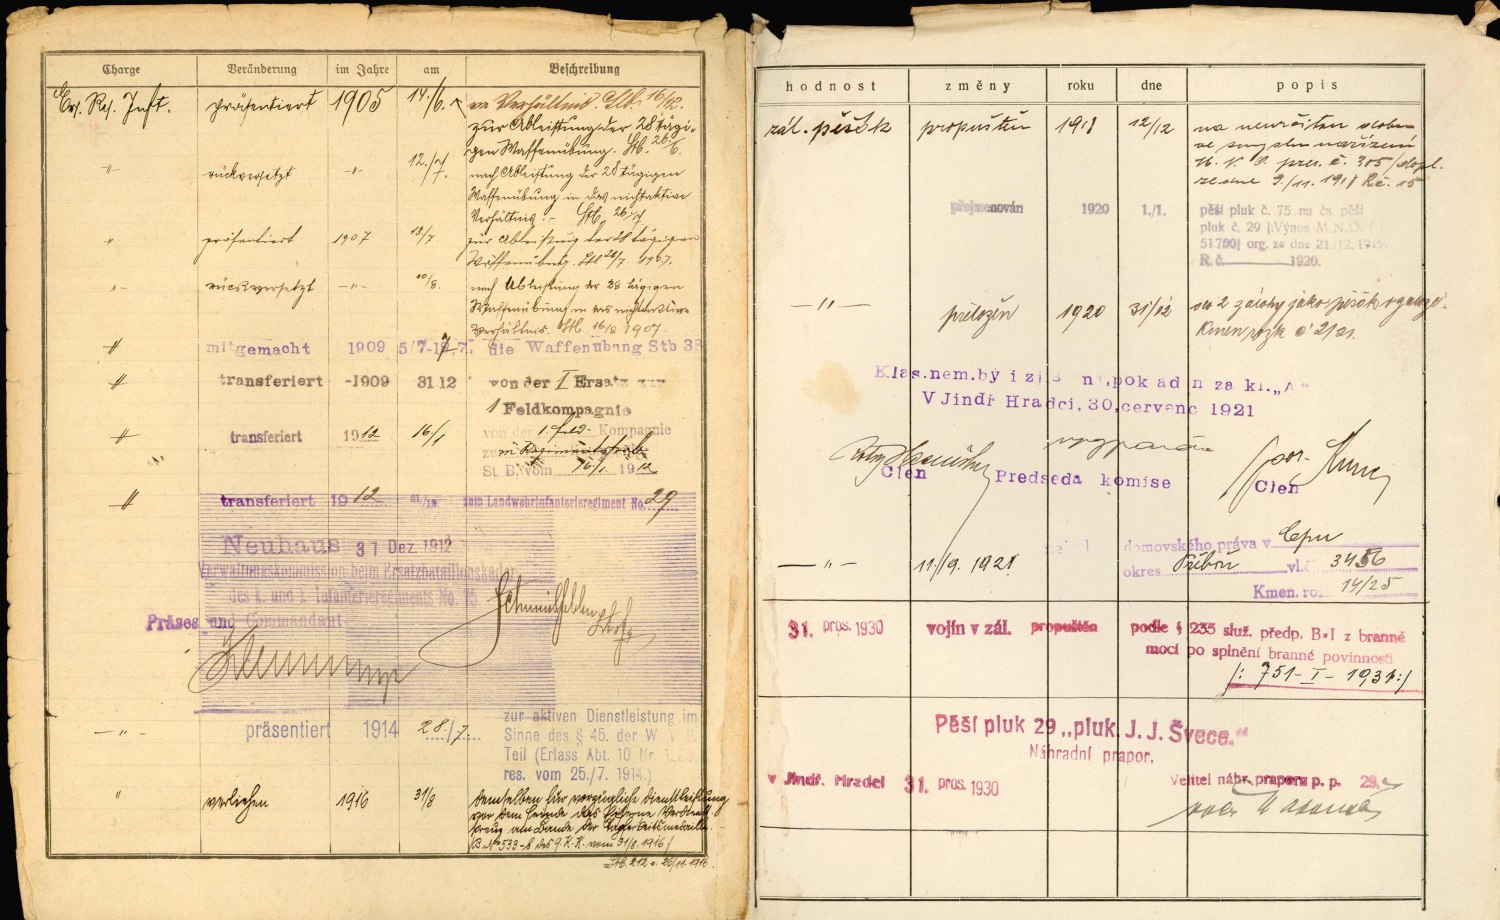 Charge Veränderung im Jahre am Beschreibung
Ers. Res. Inft. präsentiert 1905 14./6.
zur Ableistung der 28 tägi-
gen Waffenübung. Stb. 26/6.
" rückversetzt -"- 12./7. nach Ableistung der 28 tägigen
Waffenübung in das nichtaktive
Verhältnis. - Stb. 26/7
" präsentiert 1907 13/7. zur Ableistung der 28 tägigen
Waffenübung. Stb 28/7 1907.
-"- rückversetzt -"- 10/8. nach Ableistung der 28 tägigen
Waffenübung in das nichtaktive
Verhältnis. Stb 16/8 1907.
" mitgemacht 1909 5/7-17 7. die Waffenübung Stb 38
" transferiert -1909 31.12 von der I Ersatz zur
1 Feldkompagnie
" transferiert 1912 16/1 von der 1. Feld- Kompagnie
zum Regimentsstab
St. B. vom 16/1. 1912
" transferiert 1912 31/12. zum Landwehrinfanterieregiment No. 29
Neuhaus 31 Dez. 1912
Verwaltungskommission beim Ersatzbataillonskader
des k. und k. Infanterieregiments No. 75
Präses und Commandant
-"- präsentiert 1914 28./7. zur aktiven Dienstleistung im
Sinne des § 45. der W. V. I.
Teil (Erlass Abt. 10 Nr.
res. vom 25./7. 1914.)
" verliehen 1916 31/8 demselben für vorzügliche Dienstleistung
vor dem Feinde das eiserne Verdienst-
kreuz am Bande der Tapferkeitsmedaille.
B. No 533-b des 9. K. K. vom 31/8. 1916/
Stb. 212 v. 26/11. 1916.
hodnost změny roku dne popis
zál. pěšák propuštěn 1918 12/12 na neurčitou dobu
ve smyslu nařízení
pres. č. 305/dopl.
ze dne 9./11. 1918 R.č. 15
přejmenován 1920 1./1. pěší pluk č. 75 na čs. pěší
pluk č. 29 [:Výnos M. N. O.
51.750] org. ze dne 21./12. 1919.
R. č. 1920.
-"- přeložen 1920 31/12 do 2 zálohy jako pěšák
Kmen,
Klas. nem. by i pok ad n za kl. „A"
V Jindř Hradci, 30, červenc 1921
Clen Predseda komise Clen
-"- 11./9. 1921 domovského práva v
okres Příbor vl. č. 3456
Kmen. roz. 14/25
31. pros. 1930 vojín v zál. propuštěn podle § 235 služ. předp. B-I z branné
moci po splnění branné povinnosti
/: 751 - I - 1931:/
Pěší pluk 29 „pluk. J. J. Švece."
Náhradní prapor.
v Jindř. Hradci 31. pros. 1930 Velitel náhr. praporu p. p. 29.